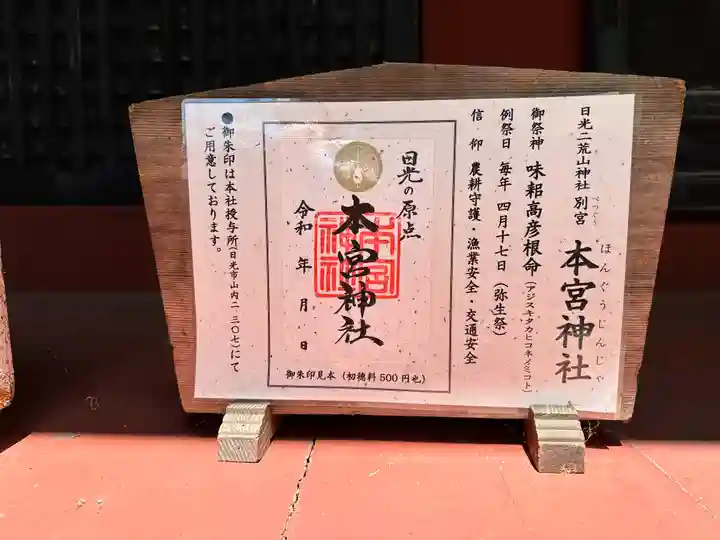 日光二荒山神社 別宮 本宮神社
べつぐう
ほんぐうじんじゃ
御祭神 味耜高彦根命（アジスキタカヒコネノミコト）
例祭日 毎年 四月十七日（弥生祭）
信仰 農耕守護・漁業安全・交通安全
日光の原点
本宮神社
本宮神社
令和 年 月 日
御朱印見本（初穂料500円也）
●御朱印は本社授与所（日光市山内二-三〇七）にて
ご用意しております。